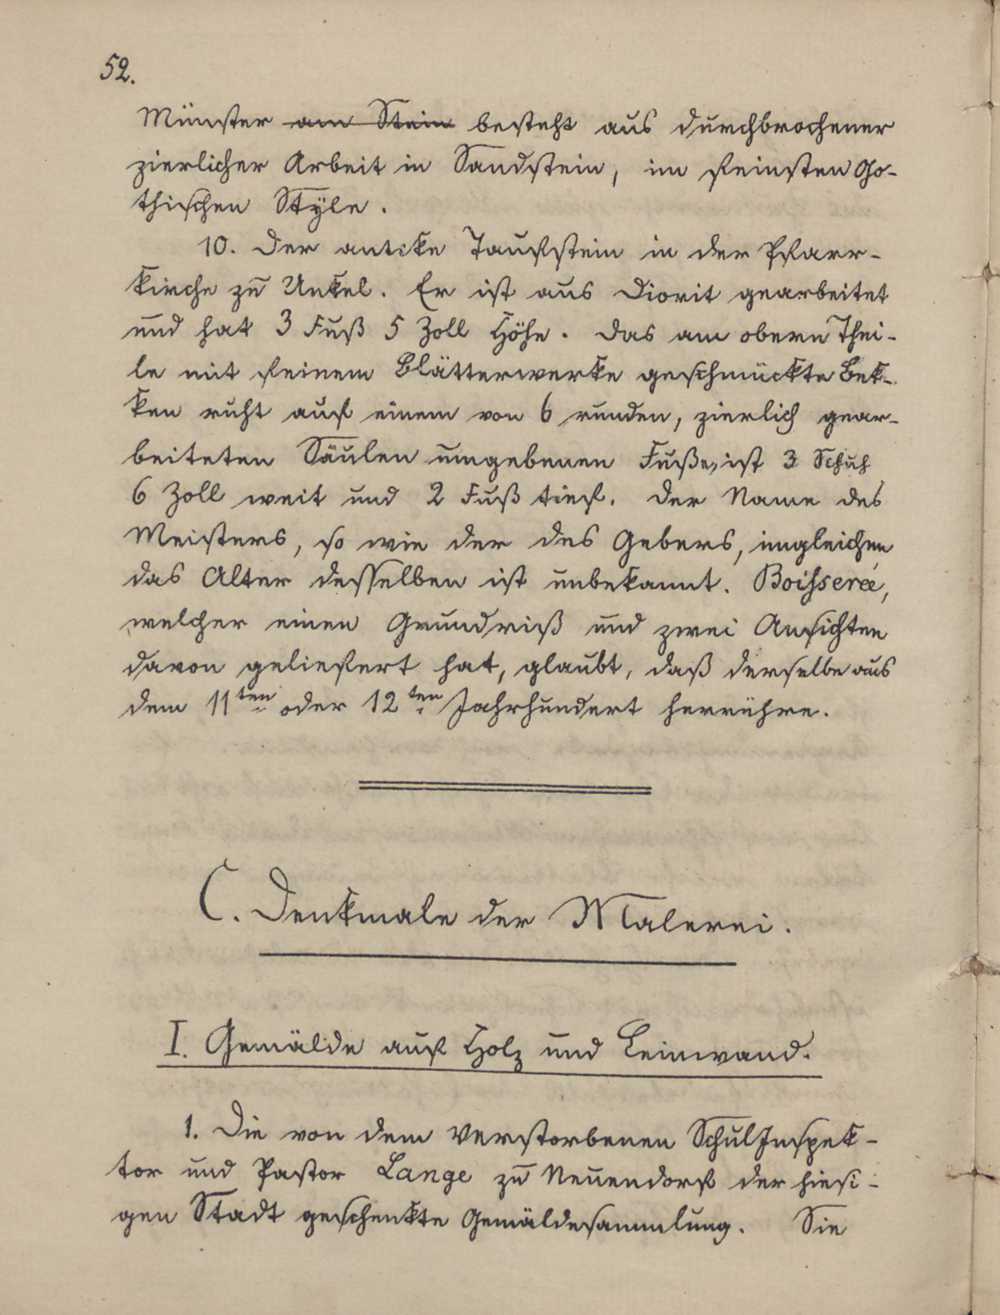 52.
Münster am Stein besteht aus durchbrochener
zierlicher Arbeit in Sandstein, im feinsten Go-
thischen Style.
10. Der antike Taufstein in der Pfarr-
kirche zu Unkel. Er ist aus Diorit gearbeitet
und hat 3 Fuß 5 Zoll Höhe. Das am obern Thei-
le mit feinem Blätterwerke geschmückte Bek-
ken ruht auf einem von 6 runden, zierlich gear-
beiteten Säulen umgebenen Fuße, ist 3 Schuh
6 Zoll weit und 2 Fuß tief. Der Name des
Meisters, so wie der des Gebers, imgleichen
das Alter desselben ist unbekannt. Boisserée,
welcher einen Grundriß und zwei Ansichten
davon geliefert hat, glaubt, daß derselbe aus
dem 11ten oder 12ten Jahrhundert herrühre.
C. Denkmale der Malerei.
I. Gemälde auf Holz und Leinwand.
1. Die von dem verstorbenen Schul Inspek-
tor und Pastor Lange zu Neuendorf der hiesi-
gen Stadt geschenkte Gemäldesammlung. Sie